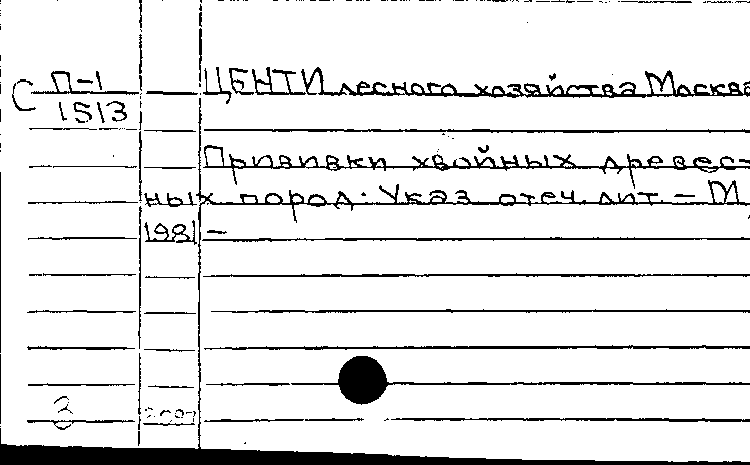 С П-1
1513
ЦБНТИ лесного хозяйства Москва
Прививки хвойных древес-
ных пород. Указ отеч. лит. – М,
1981 –
3
2097